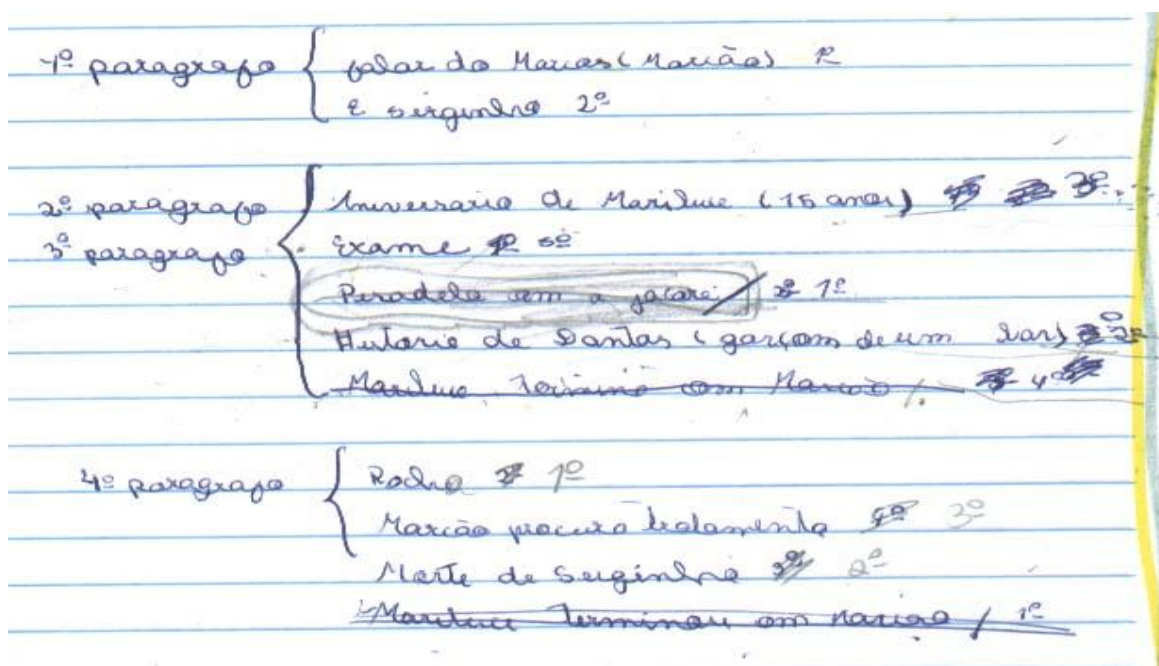 1º paragrafo falar do Marcos (Marcão) 1º
E serginho 2º
2º paragrafo Aniversario de Mariluce (15 anos) 3º
3º paragrafo Exame 5º
Peradela com a jacaré 1º
de Dantas (garçom de um bar) 2º
Mariluce Termina com Marcão 4º
4º paragrafo Rocha 1º
Marcão procura tratamento 3º
Morte de Serginho 2º
Mariluce Terminou com marcao 1º